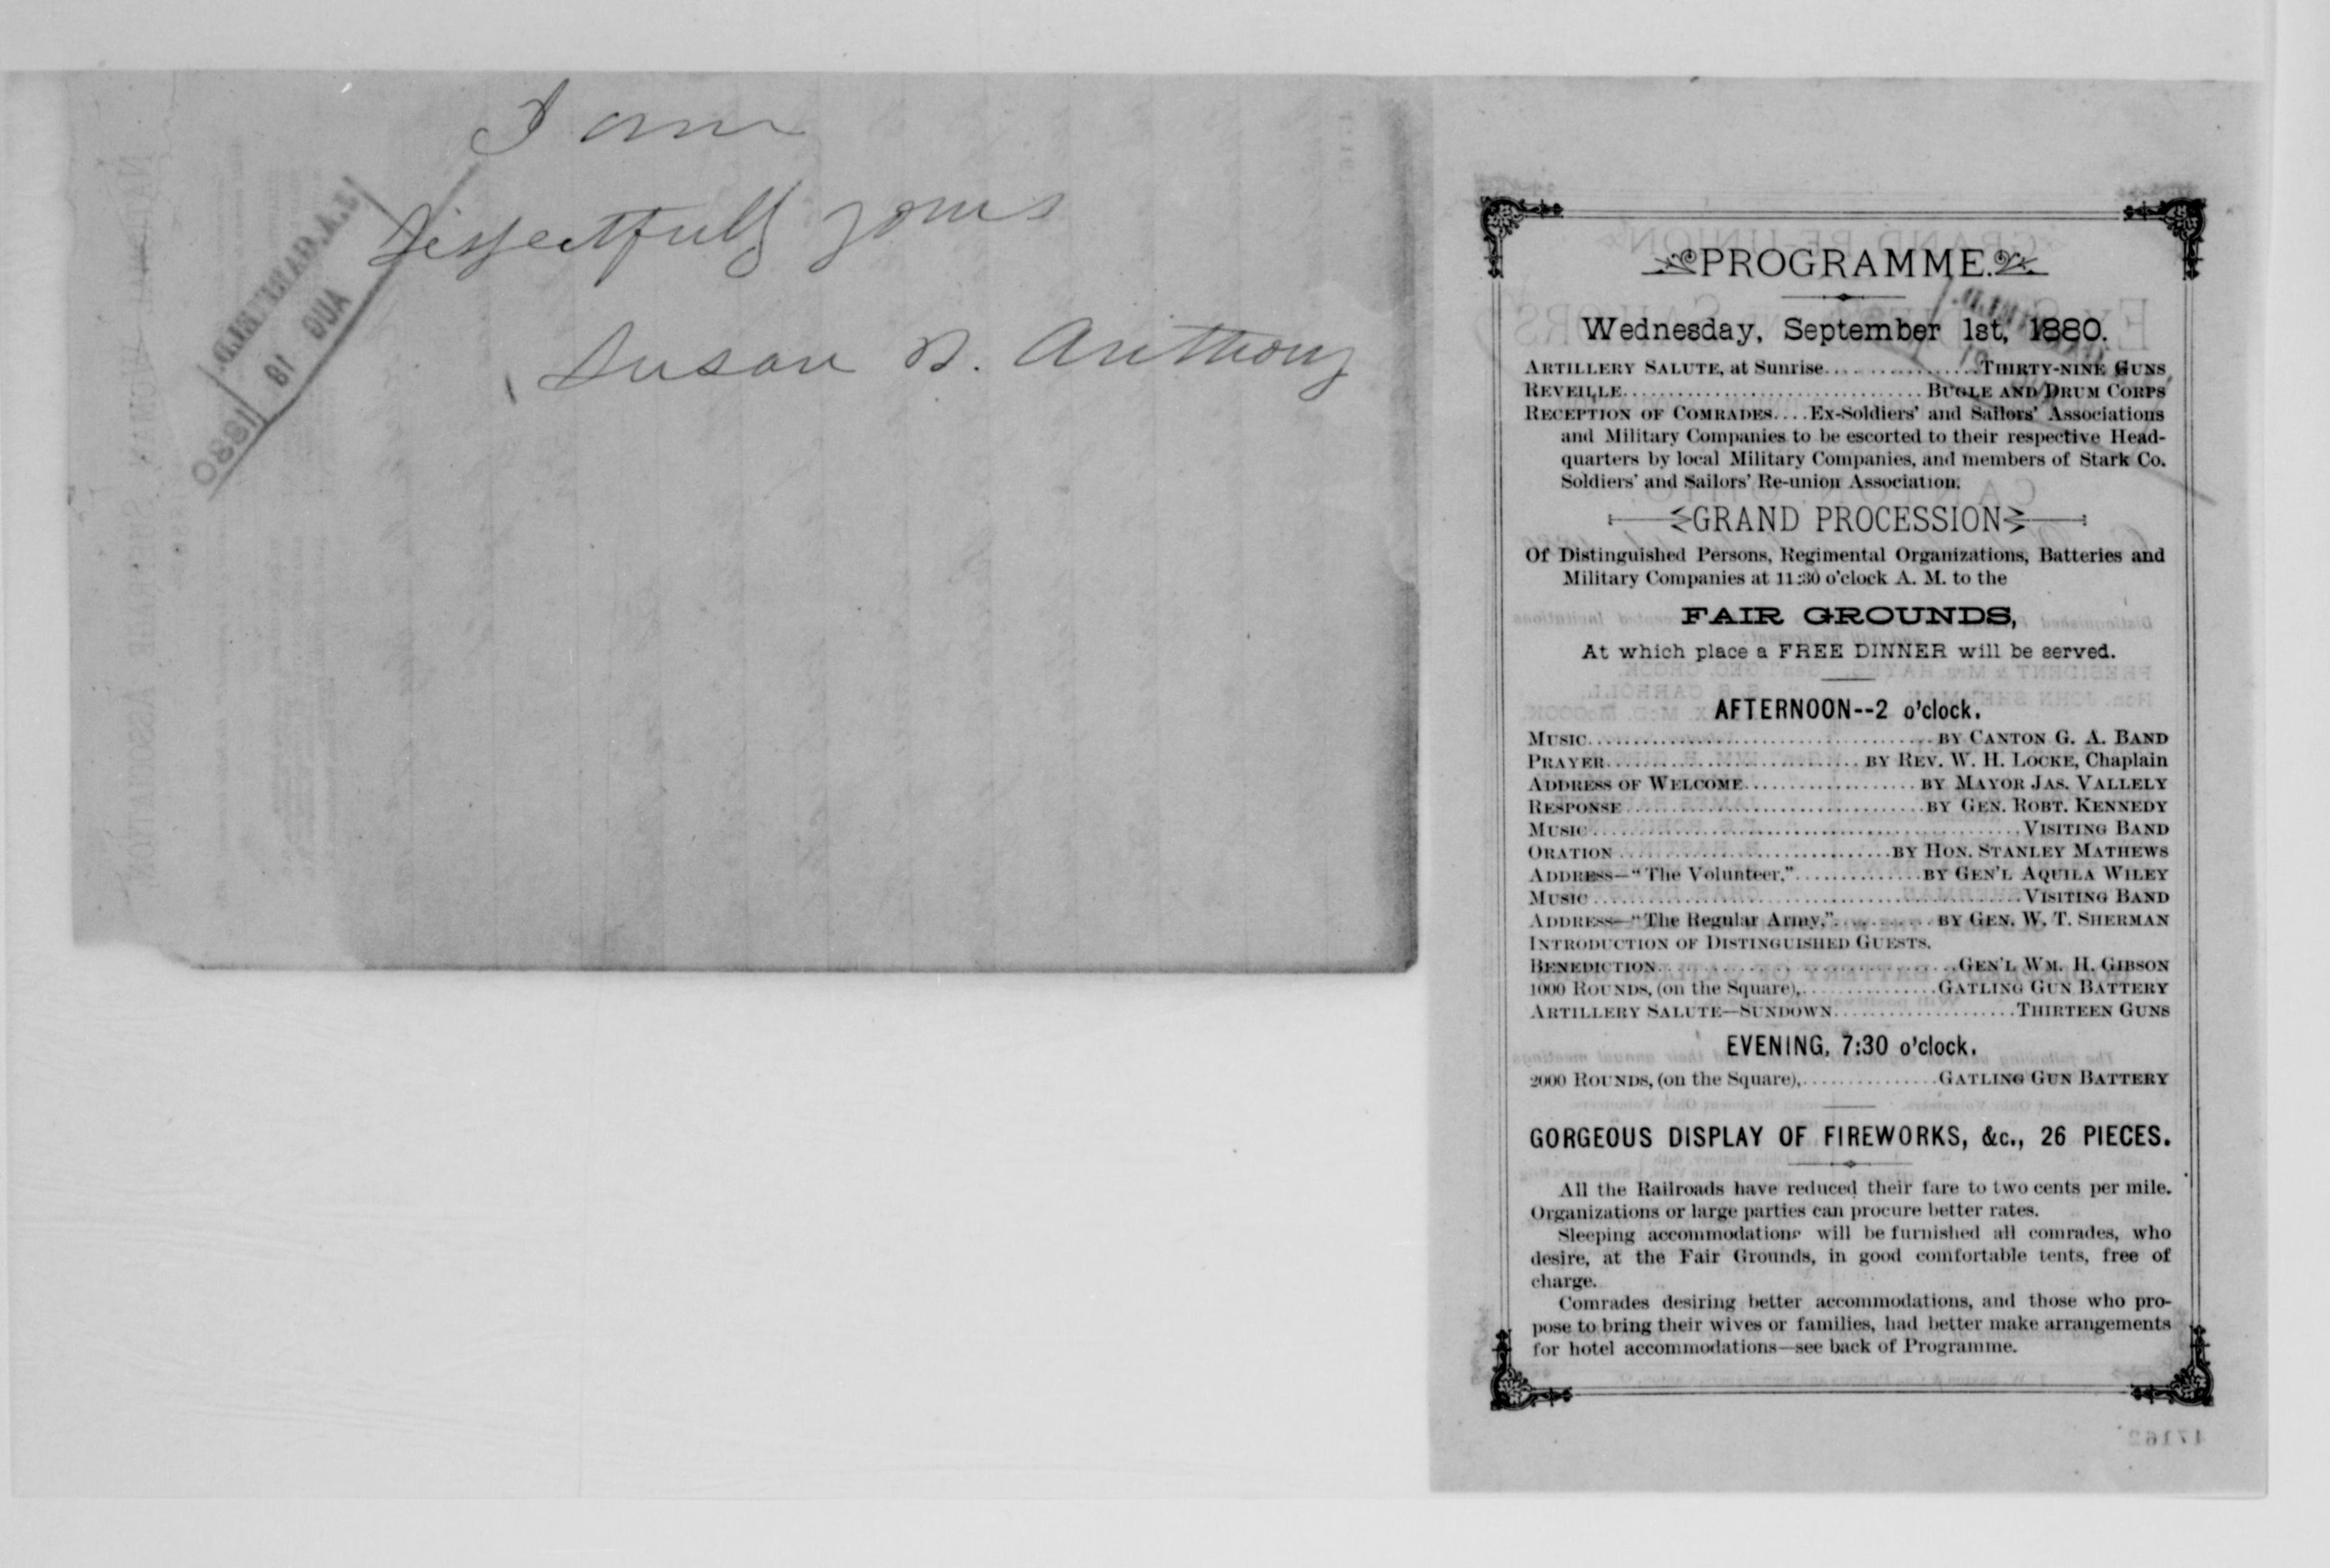 I am
Respectfully yours
Susan B. Anthony
J. A. GARFIELD.
AUG 18 1880
PROGRAMME.
Wednesday, September 1st, 1880.
ARTILLERY SALUTE, at Sunrise................THIRTY-NINE GUNS
REVEILLE................BUGLE AND DRUM CORPS
RECEPTION OF COMRADES....Ex-Soldiers' and Sailors' Associations
and Military Companies to be escorted to their respective Head-
quarters by local Military Companies, and members of Stark Co.
Soldiers' and Sailors' Re-union Association.
GRAND PROCESSION
Of Distinguished Persons, Regimental Organizations, Batteries and
Military Companies at 11:30 o'clock A. M. to the
FAIR GROUNDS,
At which place a FREE DINNER will be served.
AFTERNOON--2 o'clock.
MUSIC................BY CANTON G. A. BAND
PRAYER................BY REV. W. H. LOCKE, Chaplain
ADDRESS OF WELCOME................BY MAYOR JAS. VALLELY
RESPONSE................BY GEN. ROBT. KENNEDY
MUSIC................VISITING BAND
ORATION................BY HON. STANLEY MATHEWS
ADDRESS—"The Volunteer,"................BY GEN'L AQUILA WILEY
MUSIC................VISITING BAND
ADDRESS—"The Regular Army,"................BY GEN. W. T. SHERMAN
INTRODUCTION OF DISTINGUISHED GUESTS.
BENEDICTION................GEN'L WM. H. GIBSON
1000 ROUNDS, (on the Square),................GATLING GUN BATTERY
ARTILLERY SALUTE—SUNDOWN................THIRTEEN GUNS
EVENING, 7:30 o'clock.
2000 ROUNDS, (on the Square),................GATLING GUN BATTERY
GORGEOUS DISPLAY OF FIREWORKS, &c., 26 PIECES.
All the Railroads have reduced their fare to two cents per mile.
Organizations or large parties can procure better rates.
Sleeping accommodations will be furnished all comrades, who
desire, at the Fair Grounds, in good comfortable tents, free of
charge.
Comrades desiring better accommodations, and those who pro-
pose to bring their wives or families, had better make arrangements
for hotel accommodations—see back of Programme.
17162